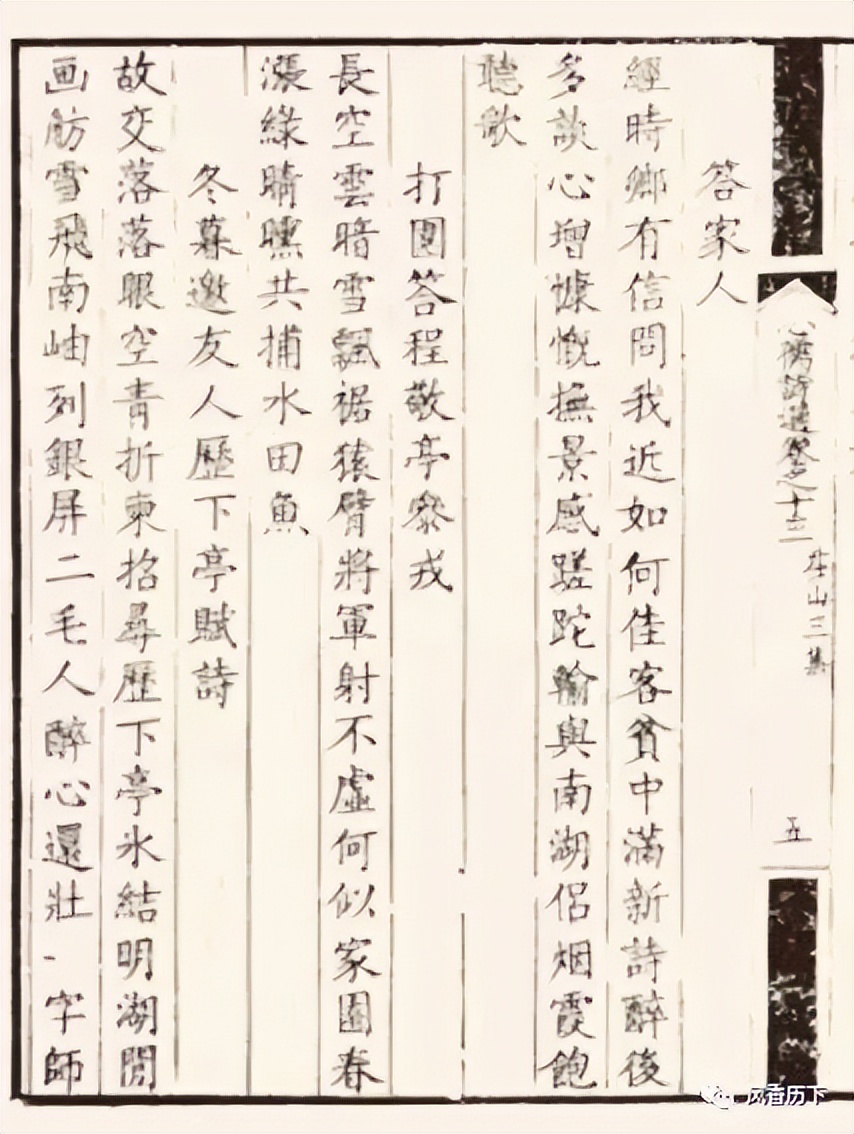 答家人
經時鄉有信問我近如何佳客貧中滿新詩醉後
多談心增慷慨撫景感蹉跎輸與南湖侣烟霞飽
聽歌
打圍答程敬亭參戎
長空雲暗雪飄裾猿臂將軍射不虛何似家園春
漲綠晴曛共捕水田魚
冬暮邀友人歷下亭賦詩
故交落落眼空青折柬招尋歷下亭氷結明湖閒
画舫雪飛南岫列銀屏二毛人醉心還壯一字師
詩選卷之十三
山三集
五
风香历下